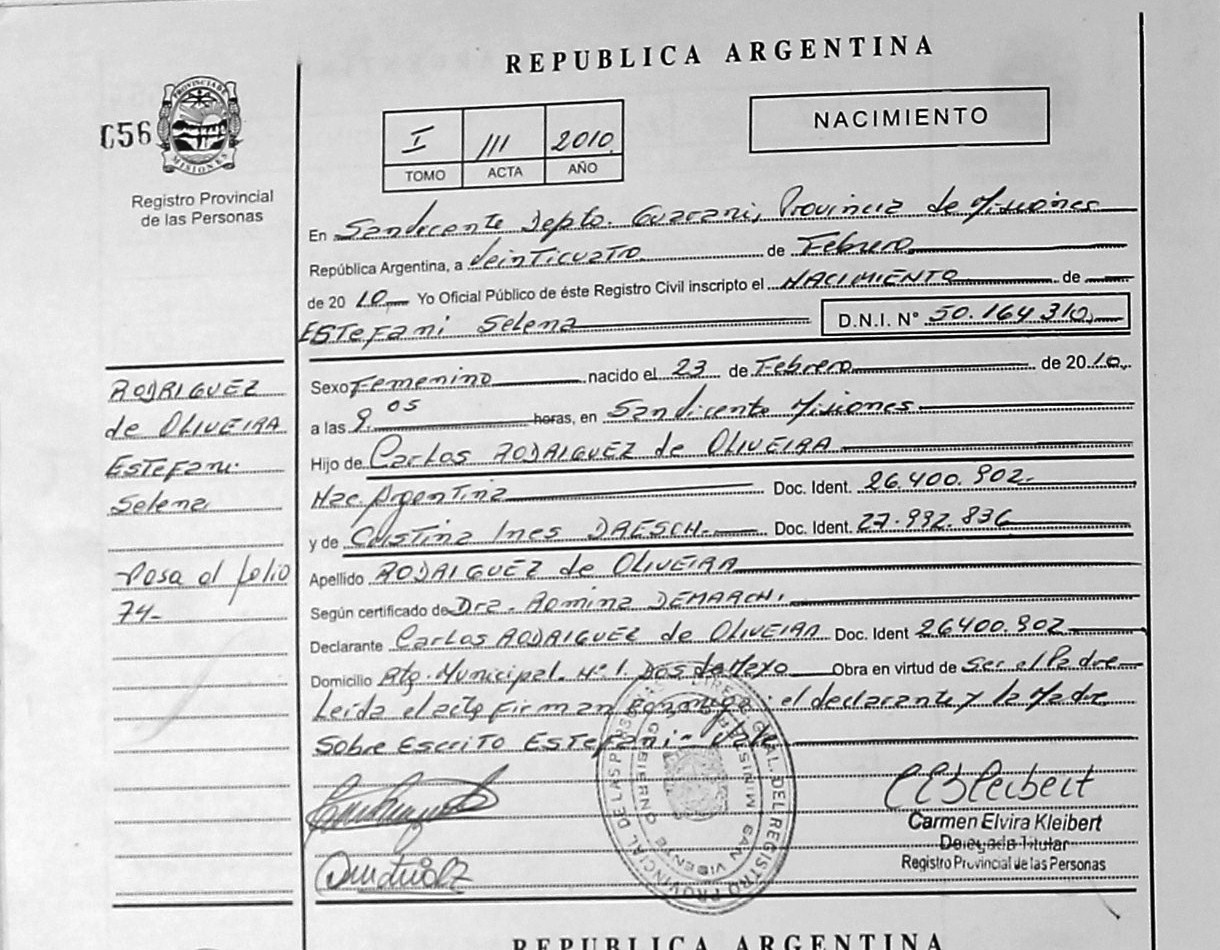 REPUBLICA ARGENTINA
056
PROVINCIA DE
MISIONES
Registro Provincial
de las Personas
I III 2010
TOMO ACTA AÑO
NACIMIENTO
En San Vicente Depto. Guarani, Provincia de Misiones
República Argentina, a Veinticuatro de Febrero
de 2010 Yo Oficial Público de éste Registro Civil inscripto el NACIMIENTO de
ESTEFANI Selena D.N.I. N° 50.164.310
Sexo Femenino nacido el 23 de Febrero de 2010
a las 9 05 horas, en San Vicente Misiones
Hijo de Carlos RODRIGUEZ de OLIVEIRA
Nac. Argentina Doc. Ident. 26.400.902
y de Cristina Ines DAESCH Doc. Ident. 27.992.836
Apellido RODRIGUEZ de OLIVEIRA
Según certificado de Dra. Romina DEMARCHI
Declarante Carlos RODRIGUEZ de OLIVEIRA Doc. Ident 26400.902
Domicilio Municipal N° 1 Obra en virtud de Ser el Padre
Leída el acta firman el declarante y la Madre
Sobre Escrito ESTEFANI
RODRIGUEZ
de OLIVEIRA
Estefani
Selena
Pasa al folio
74-
Carmen Elvira Kleibert
Delegada Titular
Registro Provincial de las Personas
REPUBLICA ARGENTINA